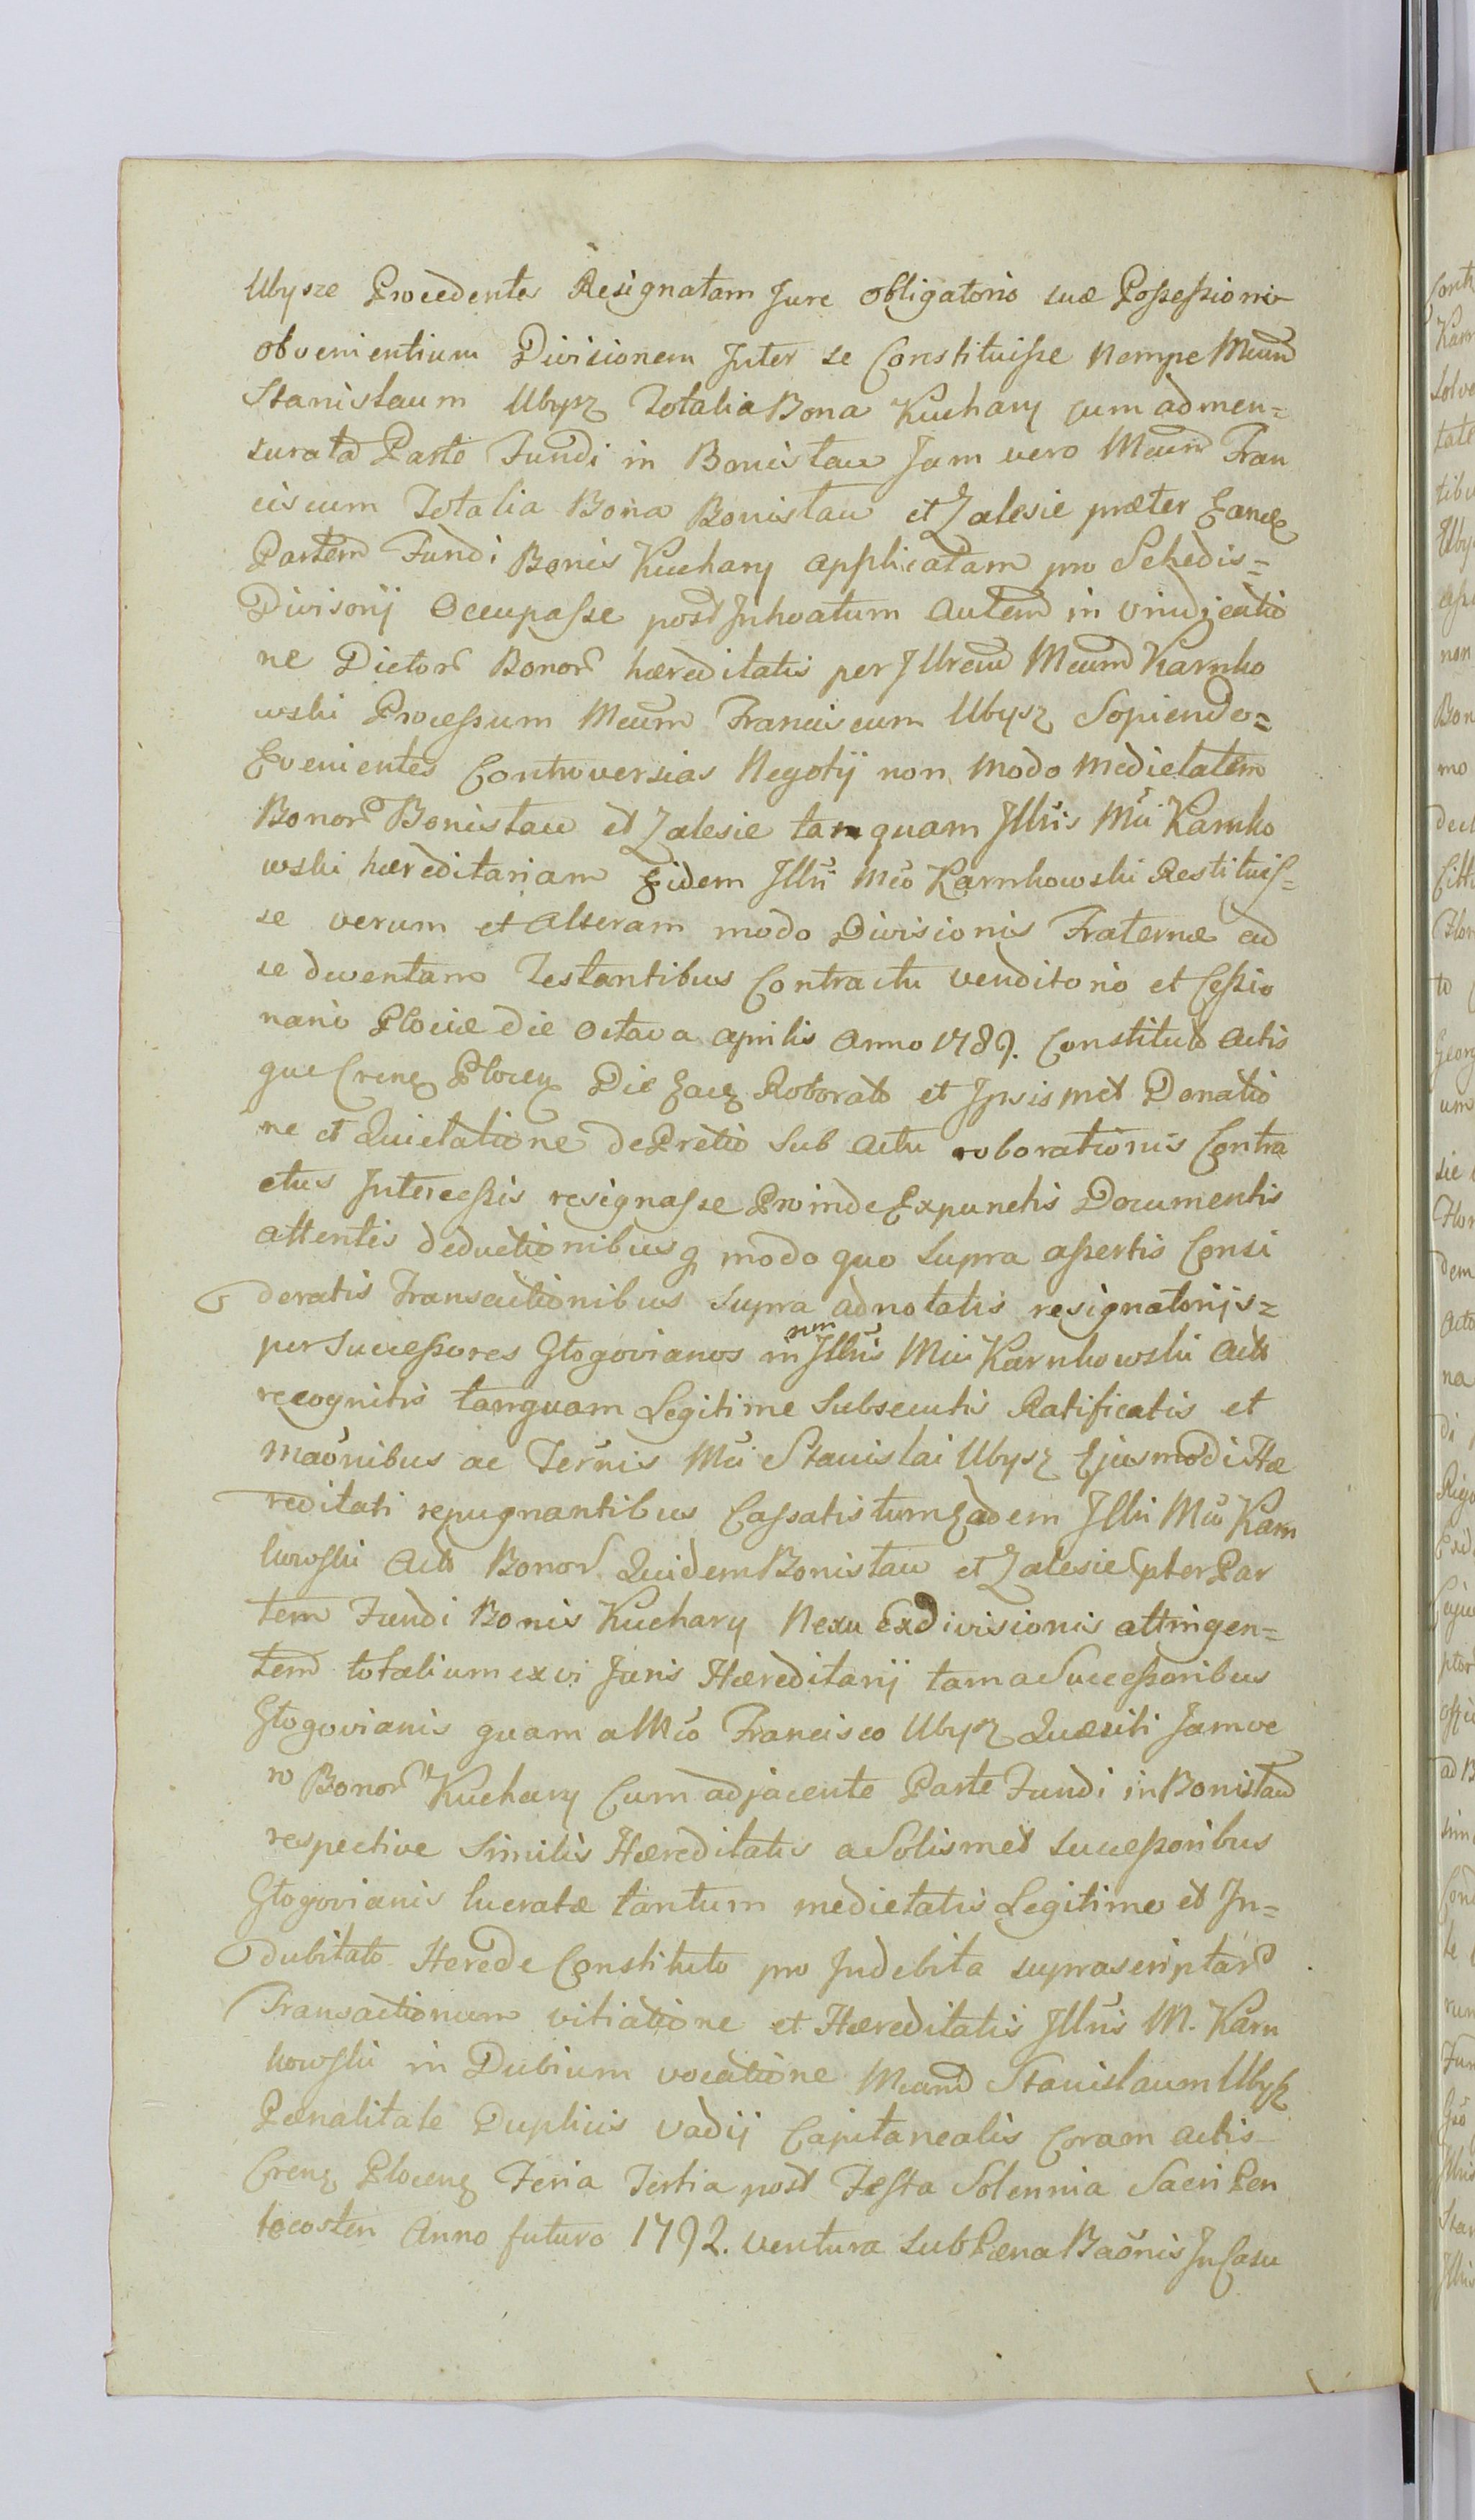 Ubysze Procedenter Resignatam Jure obligatorio suæ Poſseſsioni
obvenientium Divisionem Inter se Constituiſse Nempe Mcum
Stanislaum Ubysz Totalia Bona Kuchary cum admen=
surata Parte Fundi in Bonistaw Jam vero Mcum Fran
ciscum Totalia Bona Bonistaw et Zalesie præter Eandem
Partem Fundi Bonis Kuchary applicatam pro Schedis=
Divisorij Occupaſse post Inhoatum autem in vindicatio
ne Dictor Bonor hæreditatis per Illrem Mcum Karnko
wski Proceſsum Mcum Franciscum Ubysz Sopiendo=
Evenientes Controversias Negotij non modo medietatem
Bonor Bonistaw et Zalesie tamquam Illris Mci Karnko
wski hæreditariam Eidem Illri Mco Karnkowski Restituiſ=
se verum et alteram modo Divisionis Fraternæ ad
se deventam Testantibus Contractu venditorio et Ceſsio
nario Plociæ die octava aprilis Anno 1789. Constituto actis
que Cren Plocen Die Ead Roborato et Ipsismet Donatio
ne et Quietatione de Pretio sub actu roborationis Contra
ctus Interceſsis resignaſse Proinde Expunctis Documentis
attentis deductionibusq modo quo supra aſsertis Consi
deratis Transactionibus supra adnotatis resignatorijs=
per Succeſsores Głogovianos in rem Illris Mci Karnkowski acto
recognitis tanquam Legitime Subsecutis Ratificatis et
maõnibus ac Terñis Mci Stanislai Ubysz Ejusmodi Hæ
reditati repugnantibus Caſsatis tum Eadem Illri Mco Karn
kowſki acto Bonor Quidem Bonistaw et Zalesie pter Par
tem Fundi Bonis Kuchary Nexu Exdivisionis attingen=
tem totalium ex vi Juris Hæreditarij tam a Succeſsoribus
Głogovianis quam a Mco Francisco Ubysz Quæsiti Jam ve
ro Bonor Kuchary Cum adjacente Parte Fundi in Bonistaw
respective Similis Hæreditatis a Solismet succeſsoribus
Głogovianis lucratæ tantum medietatis Legitimo et In=
dubitato Herede Constituto pro Indebita suprascriptar
Transactionum vitiatione et Hæreditatis Illris M. Karn
kowſki in Dubium vocatione Mcum Stanislaum Ubysz
Pænalitate Duplicis vadij Capitanealis Coram actis
Cren Plocen Feria Tertia post Feſta Solennia Sacri Pen
tecosten Anno futuro 1792. ventura sub Pæna Baõnis In Casu